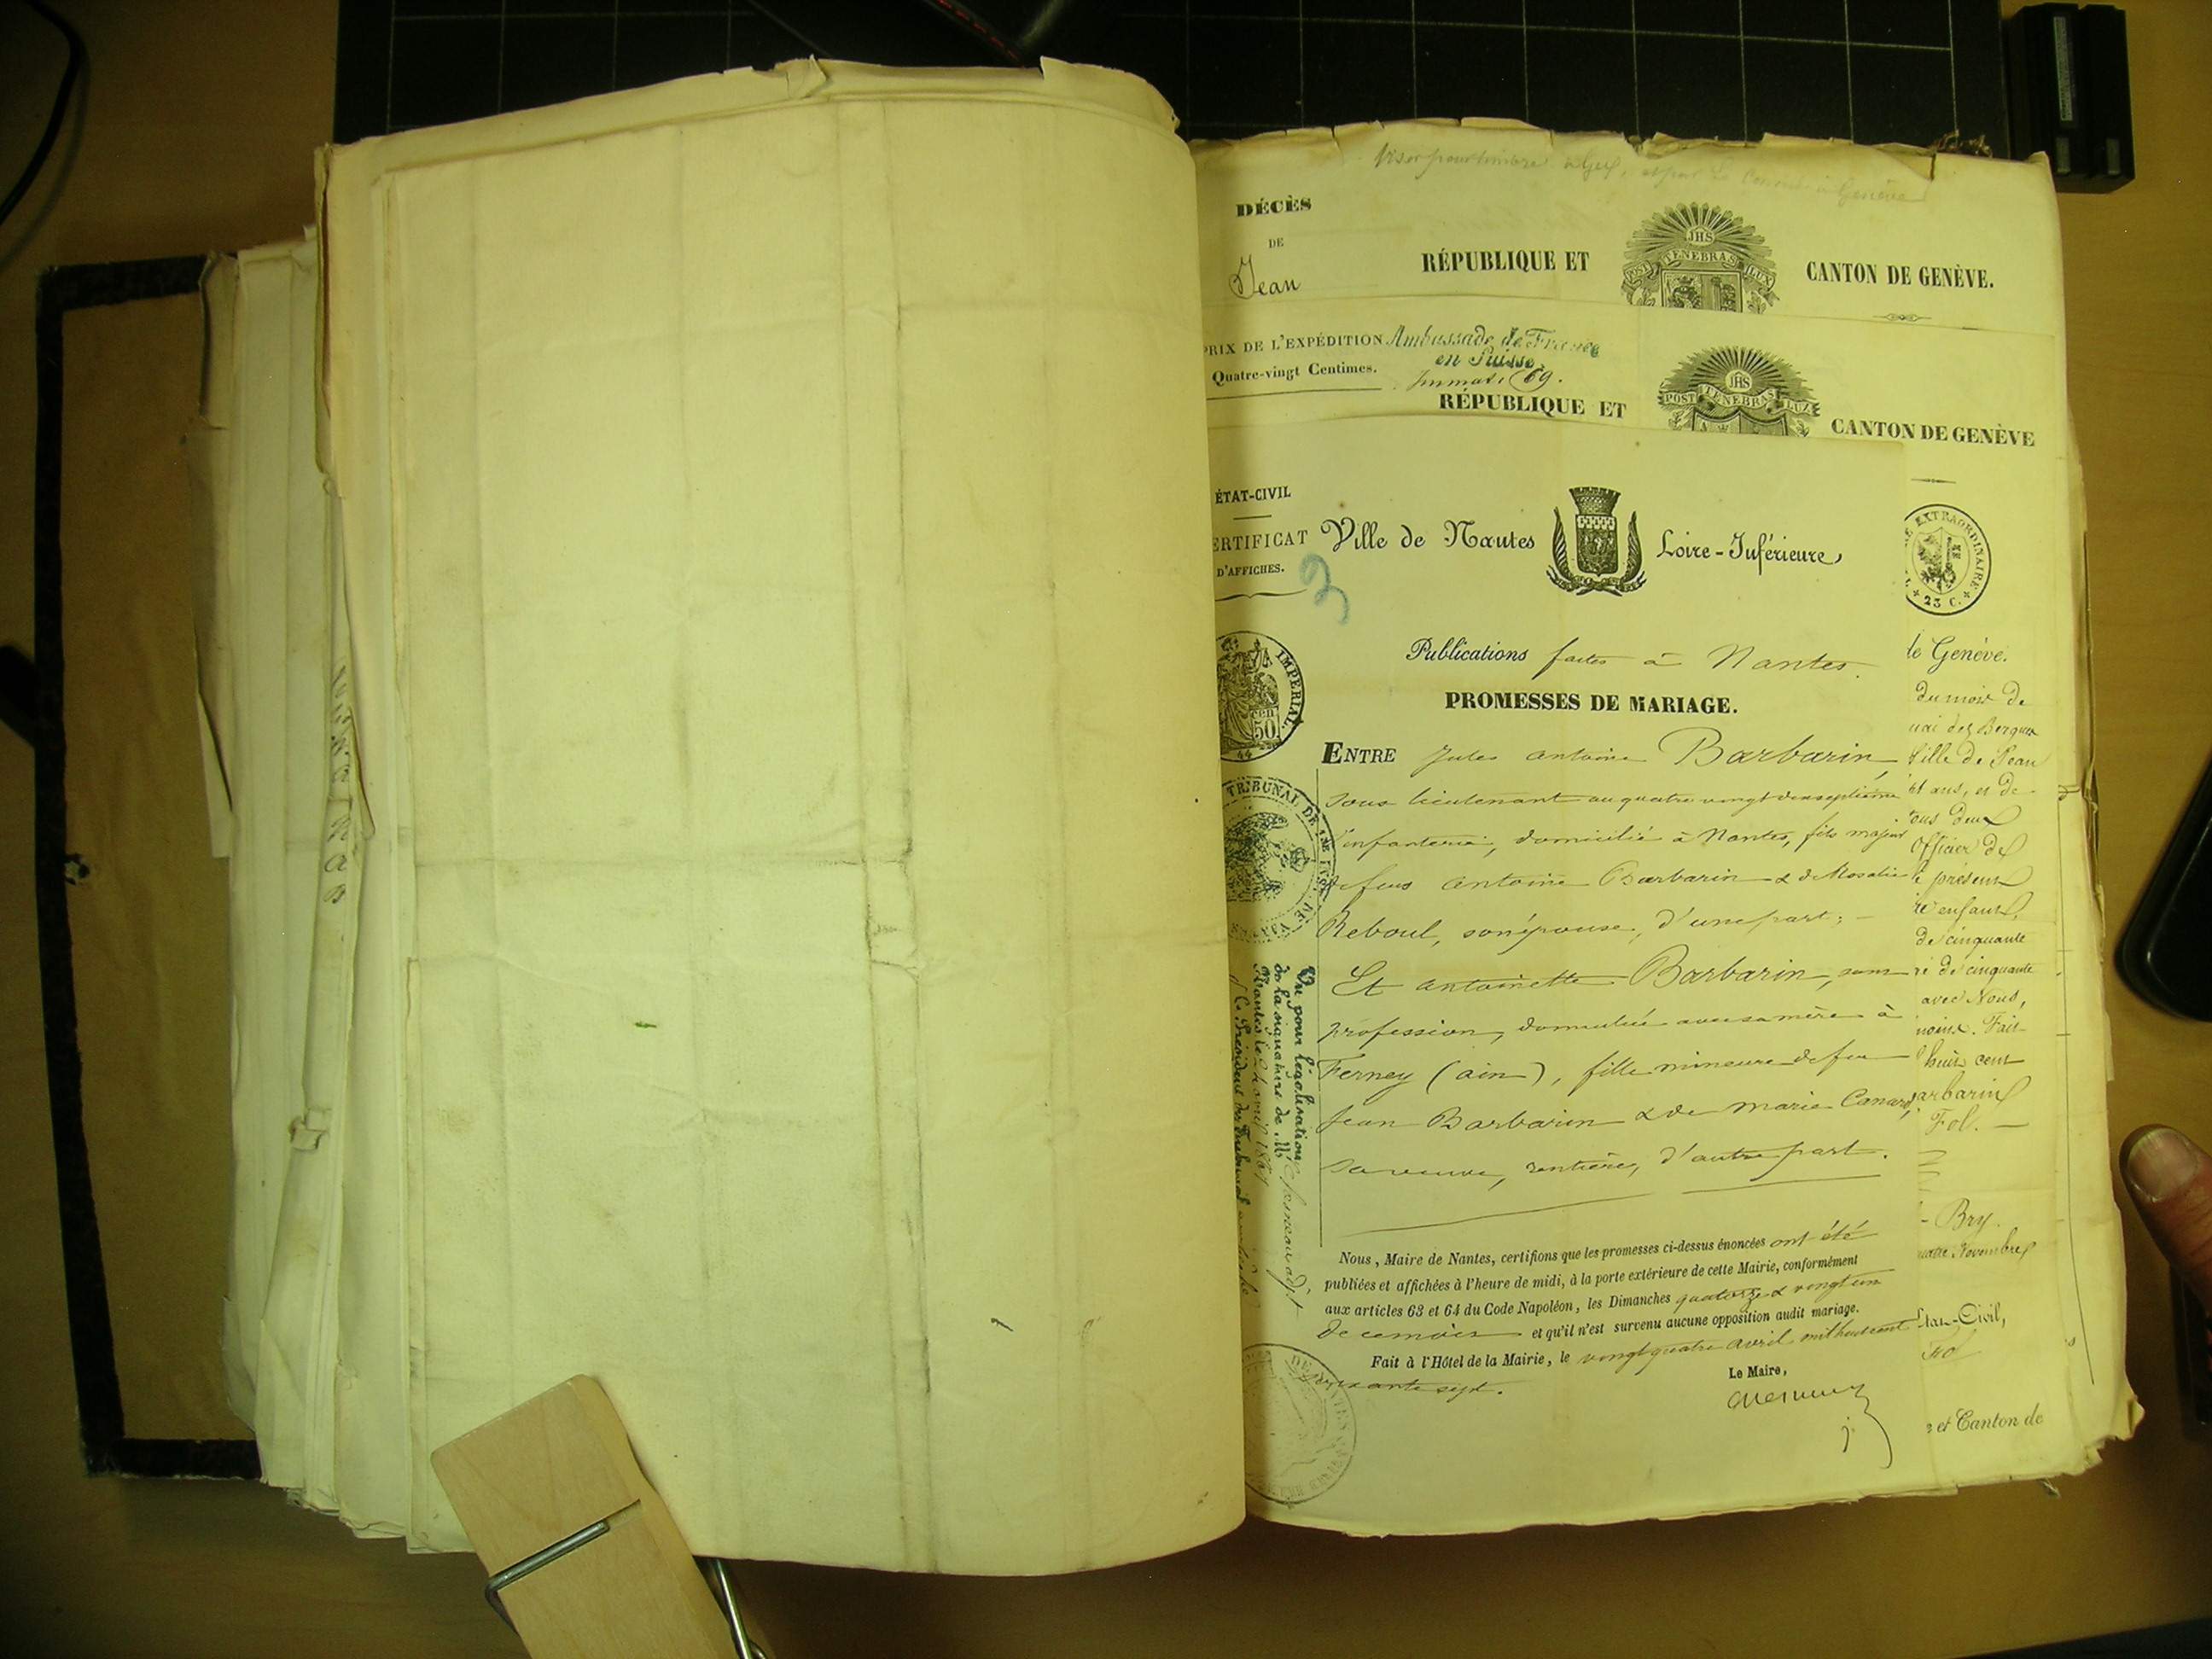 DÉCÈS
DE
Jean
RÉPUBLIQUE ET
JHS
POST TENEBRAS LUX
CANTON DE GENÈVE.
PRIX DE L'EXPÉDITION
Quatre-vingt Centimes.
Ambassade de France
en Suisse
69.
RÉPUBLIQUE ET
JHS
POST TENEBRAS LUX
CANTON DE GENÈVE
EXTRAORDINAIRE
25 C.
ÉTAT-CIVIL
ERTIFICAT
D'AFFICHES.
3
Ville de Nantes
Loire-Inférieure
IMPERIAL
cen
50
44
TRIBUNAL DE 1RE
Publications faites à Nantes.
PROMESSES DE MARIAGE.
ENTRE Jules antoine Barbarin,
sous lieutenant au quatre vingt dix septième
d'infanterie, domicilié à Nantes, fils majeur
de feus antoine Barbarin & de Rosalie
Reboul, son épouse, d'une part;
Et antoinette Barbarin, sans
profession, domiciliée avec sa mère à
Ferney (ain), fille mineure de feu
Jean Barbarin & de marie Canard,
sa veuve, rentière, d'autre part.
Nous, Maire de Nantes, certifions que les promesses ci-dessus énoncées ont été
publiées et affichées à l'heure de midi, à la porte extérieure de cette Mairie, conformément
aux articles 63 et 64 du Code Napoléon, les Dimanches quatorze & vingt un
de ce mois et qu'il n'est survenu aucune opposition audit mariage.
Fait à l'Hôtel de la Mairie, le vingt quatre avril mil huit cent
soixante sept.
Le Maire,
Vu pour légalisation
de la signature de M
Nantes le avril 1867
Le Président du Tribunal
de Genève.
du mois de
uai des Bergues
fille de Jean
ans, et de
ous deux
Officier de
le présent
re enfant,
de cinquante
ré de cinquante
avec Nous,
moins. Fait
huit cent
arbarin
Fol.
Bry.
Novembre
État-Civil,
Fol
e et Canton de